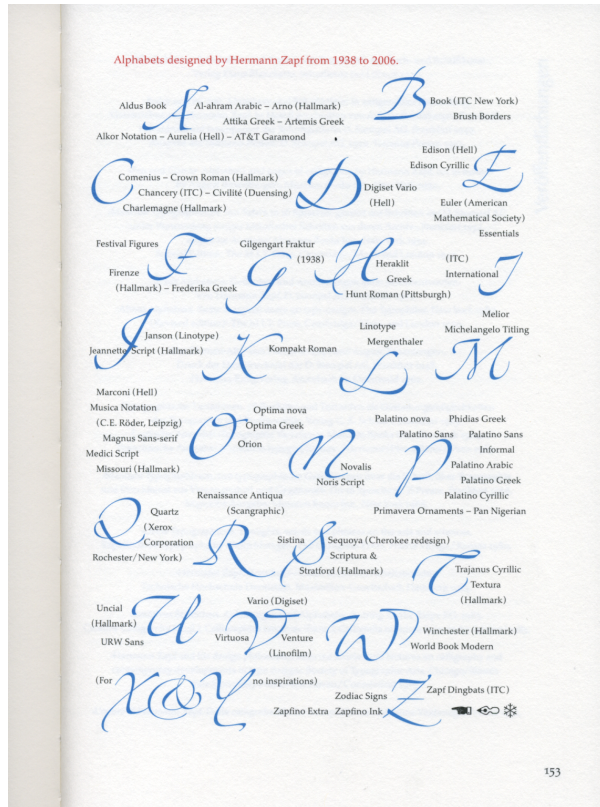 Alphabets designed by Hermann Zapf from 1938 to 2006.
Aldus Book A Al-ahram Arabic – Arno (Hallmark)
Attika Greek – Artemis Greek
Alkor Notation – Aurelia (Hell) – AT&T Garamond
B Book (ITC New York)
Brush Borders
C Comenius – Crown Roman (Hallmark)
Chancery (ITC) – Civilité (Duensing)
Charlemagne (Hallmark)
D Digiset Vario
(Hell)
Edison (Hell)
Edison Cyrillic E
Euler (American
Mathematical Society)
Essentials
Festival Figures F
Firenze
(Hallmark) – Frederika Greek
Gilgengart Fraktur
(1938)
G
H Heraklit
Greek
Hunt Roman (Pittsburgh)
(ITC)
International I
J Janson (Linotype)
Jeannette Script (Hallmark)
K Kompakt Roman
Linotype
Mergenthaler
L
Melior
Michelangelo Titling
M
Marconi (Hell)
Musica Notation
(C.E. Röder, Leipzig)
Magnus Sans-serif
Medici Script
Missouri (Hallmark)
O Optima nova
Optima Greek
Orion
N Novalis
Noris Script
Palatino nova Phidias Greek
Palatino Sans Palatino Sans
Informal
P Palatino Arabic
Palatino Greek
Palatino Cyrillic
Primavera Ornaments – Pan Nigerian
Q Quartz
(Xerox
Corporation
Rochester/New York)
Renaissance Antiqua
(Scangraphic)
R
Sistina S Sequoya (Cherokee redesign)
Scriptura &
Stratford (Hallmark)
T Trajanus Cyrillic
Textura
(Hallmark)
Uncial
(Hallmark) U
URW Sans
Vario (Digiset)
Virtuosa V Venture
(Linofilm)
W Winchester (Hallmark)
World Book Modern
(For X&Y no inspirations)
Zodiac Signs Z Zapf Dingbats (ITC)
Zapfino Extra Zapfino Ink
153